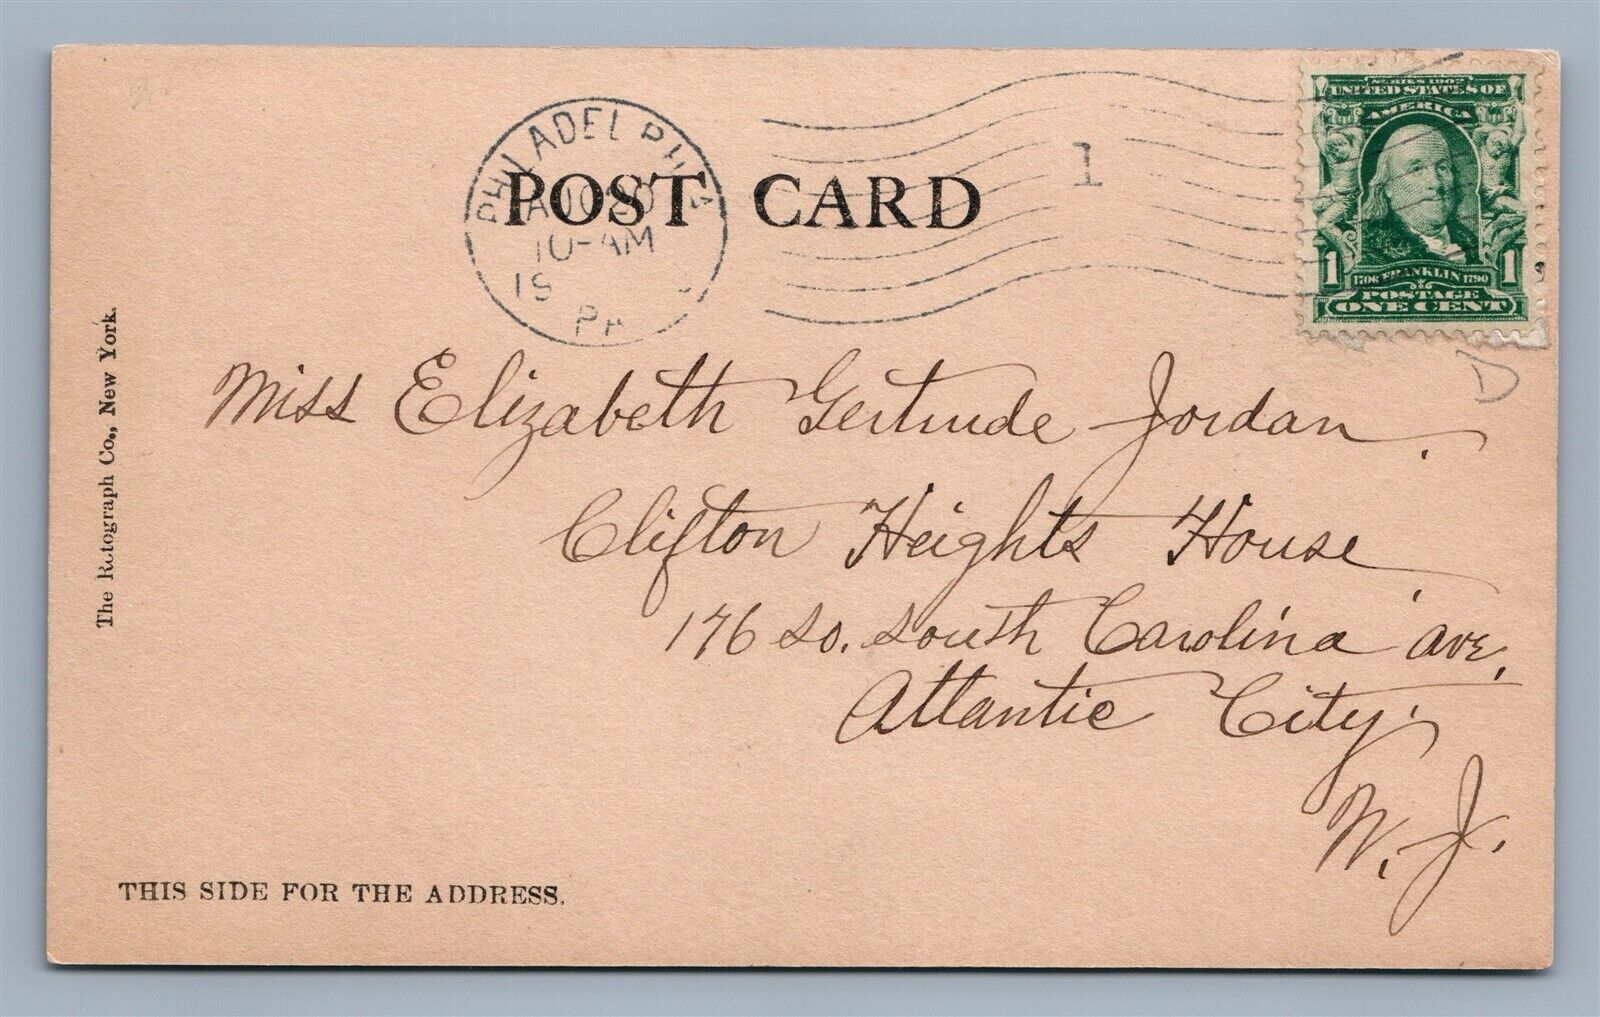 PHILADELPHIA
AUG 20
10-AM
PA
POST CARD
1
SERIES 1902
UNITED STATES OF
AMERICA
1706 FRANKLIN 1790
1 POSTAGE 1
ONE CENT
D
Miss Elizabeth Gertrude Jordan.
Clifton Heights House,
176 So. South Carolina Ave,
Atlantic City,
N.J.
The Rotograph Co., New York.
THIS SIDE FOR THE ADDRESS.